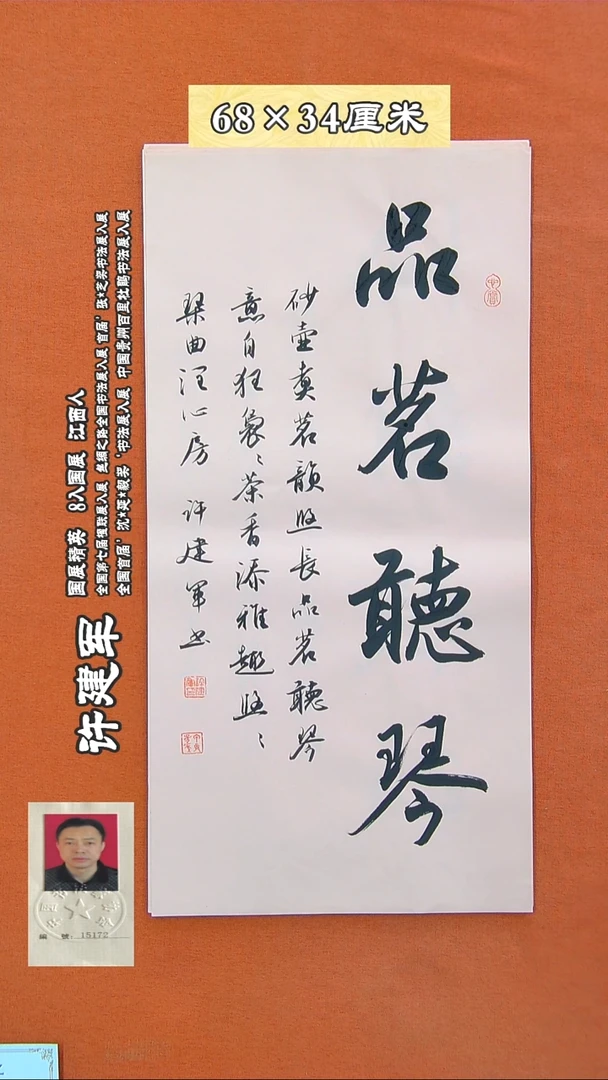 68×34厘米
品茗聽琴
砂壺煑茗韻悠長品茗聽琴
意自狂裊〻茶香添雅趣悠〻
琹曲润心房 许建军书
国展精英 8入国展 江西人
全国第七届楹联展入展 丝绸之路全国书法展入展 首届'张*芝奖书法展入展
全国首届'沈*延*毅奖'书法展入展 中国贵州百里杜鹃书法展入展
许建军
編 號: 15172